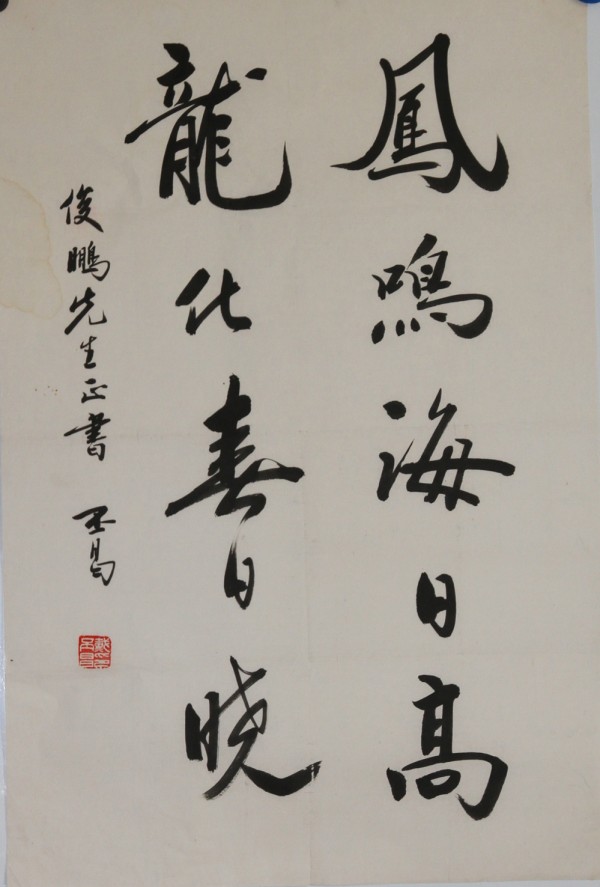 鳳鳴海日高
龍化春日晓
俊鵬先生正書 丕昌